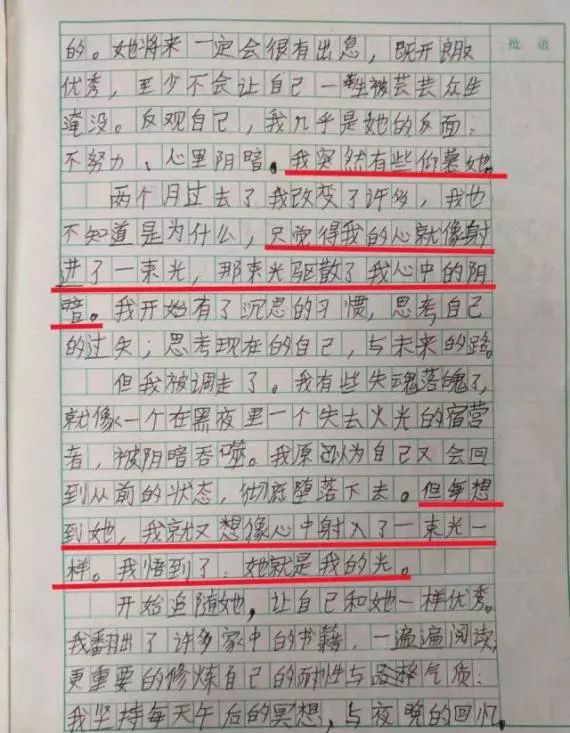 批语
的。她将来一定会很有出息，既开良取
优秀，至少不会让自己一生被芸芸众生
淹没。反观自己，我几乎是她的反面：
不努力、心里阴暗。我突然有些仰慕她。
两个月过去了我改变了许多，我也
不知道是为什么，只觉得我的心就像射
进了一束光，那束光驱散了我心中的阴
暗。我开始有了沉思的习惯，思考自己
的过失；思考现在的自己，与未来的路。
但我被调走了。我有些失魂落魄了，
就像一个在黑夜里一个失去火光的宿营
者，被阴暗吞噬。我原以为自己又会回
到从前的状态，彻底堕落下去。但每想
到她，我就又想像心中射入了一束光一
样。我悟到了：她就是我的光。
开始追随她，让自己和她一样优秀。
我翻出了许多家中的书籍，一遍遍阅读，
更重要的修炼自己的耐性与气质：
我坚持每天午后的冥想，与夜晚的回忆。